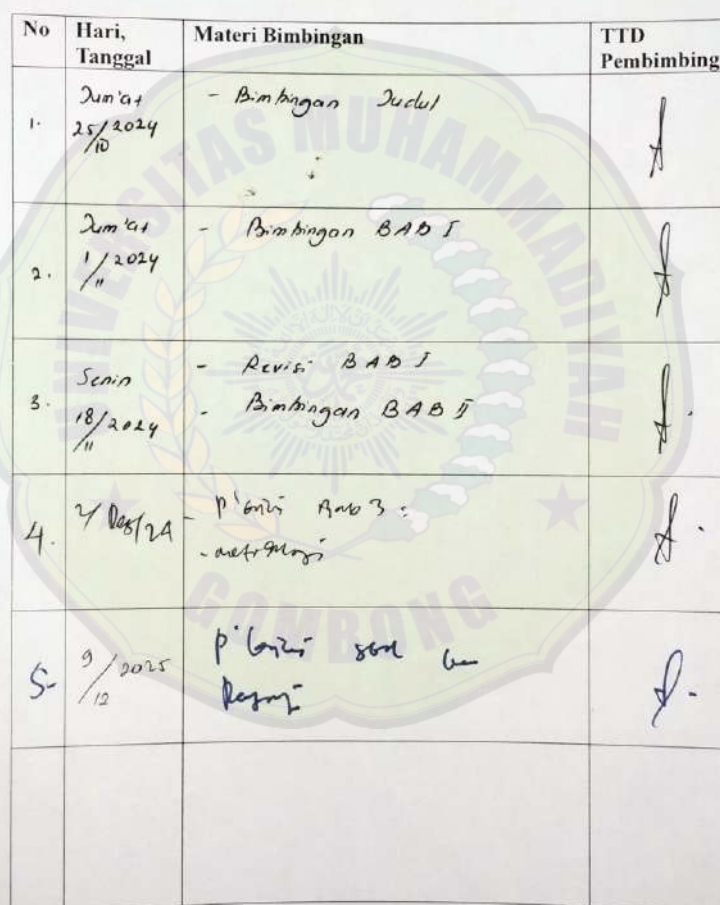 No Hari, Tanggal Materi Bimbingan TTD Pembimbing
1. Jum'at 25/10 2024 - Bimbingan Judul
2. Jum'at 1/11 2024 - Bimbingan BAB I
3. Senin 18/11 2024 - Revisi BAB I
- Bimbingan BAB II
4. 2/Des/24 - Bab 3
5. 9/12 2025
UNIVERSITAS MUHAMMADIYAH
GOMBONG